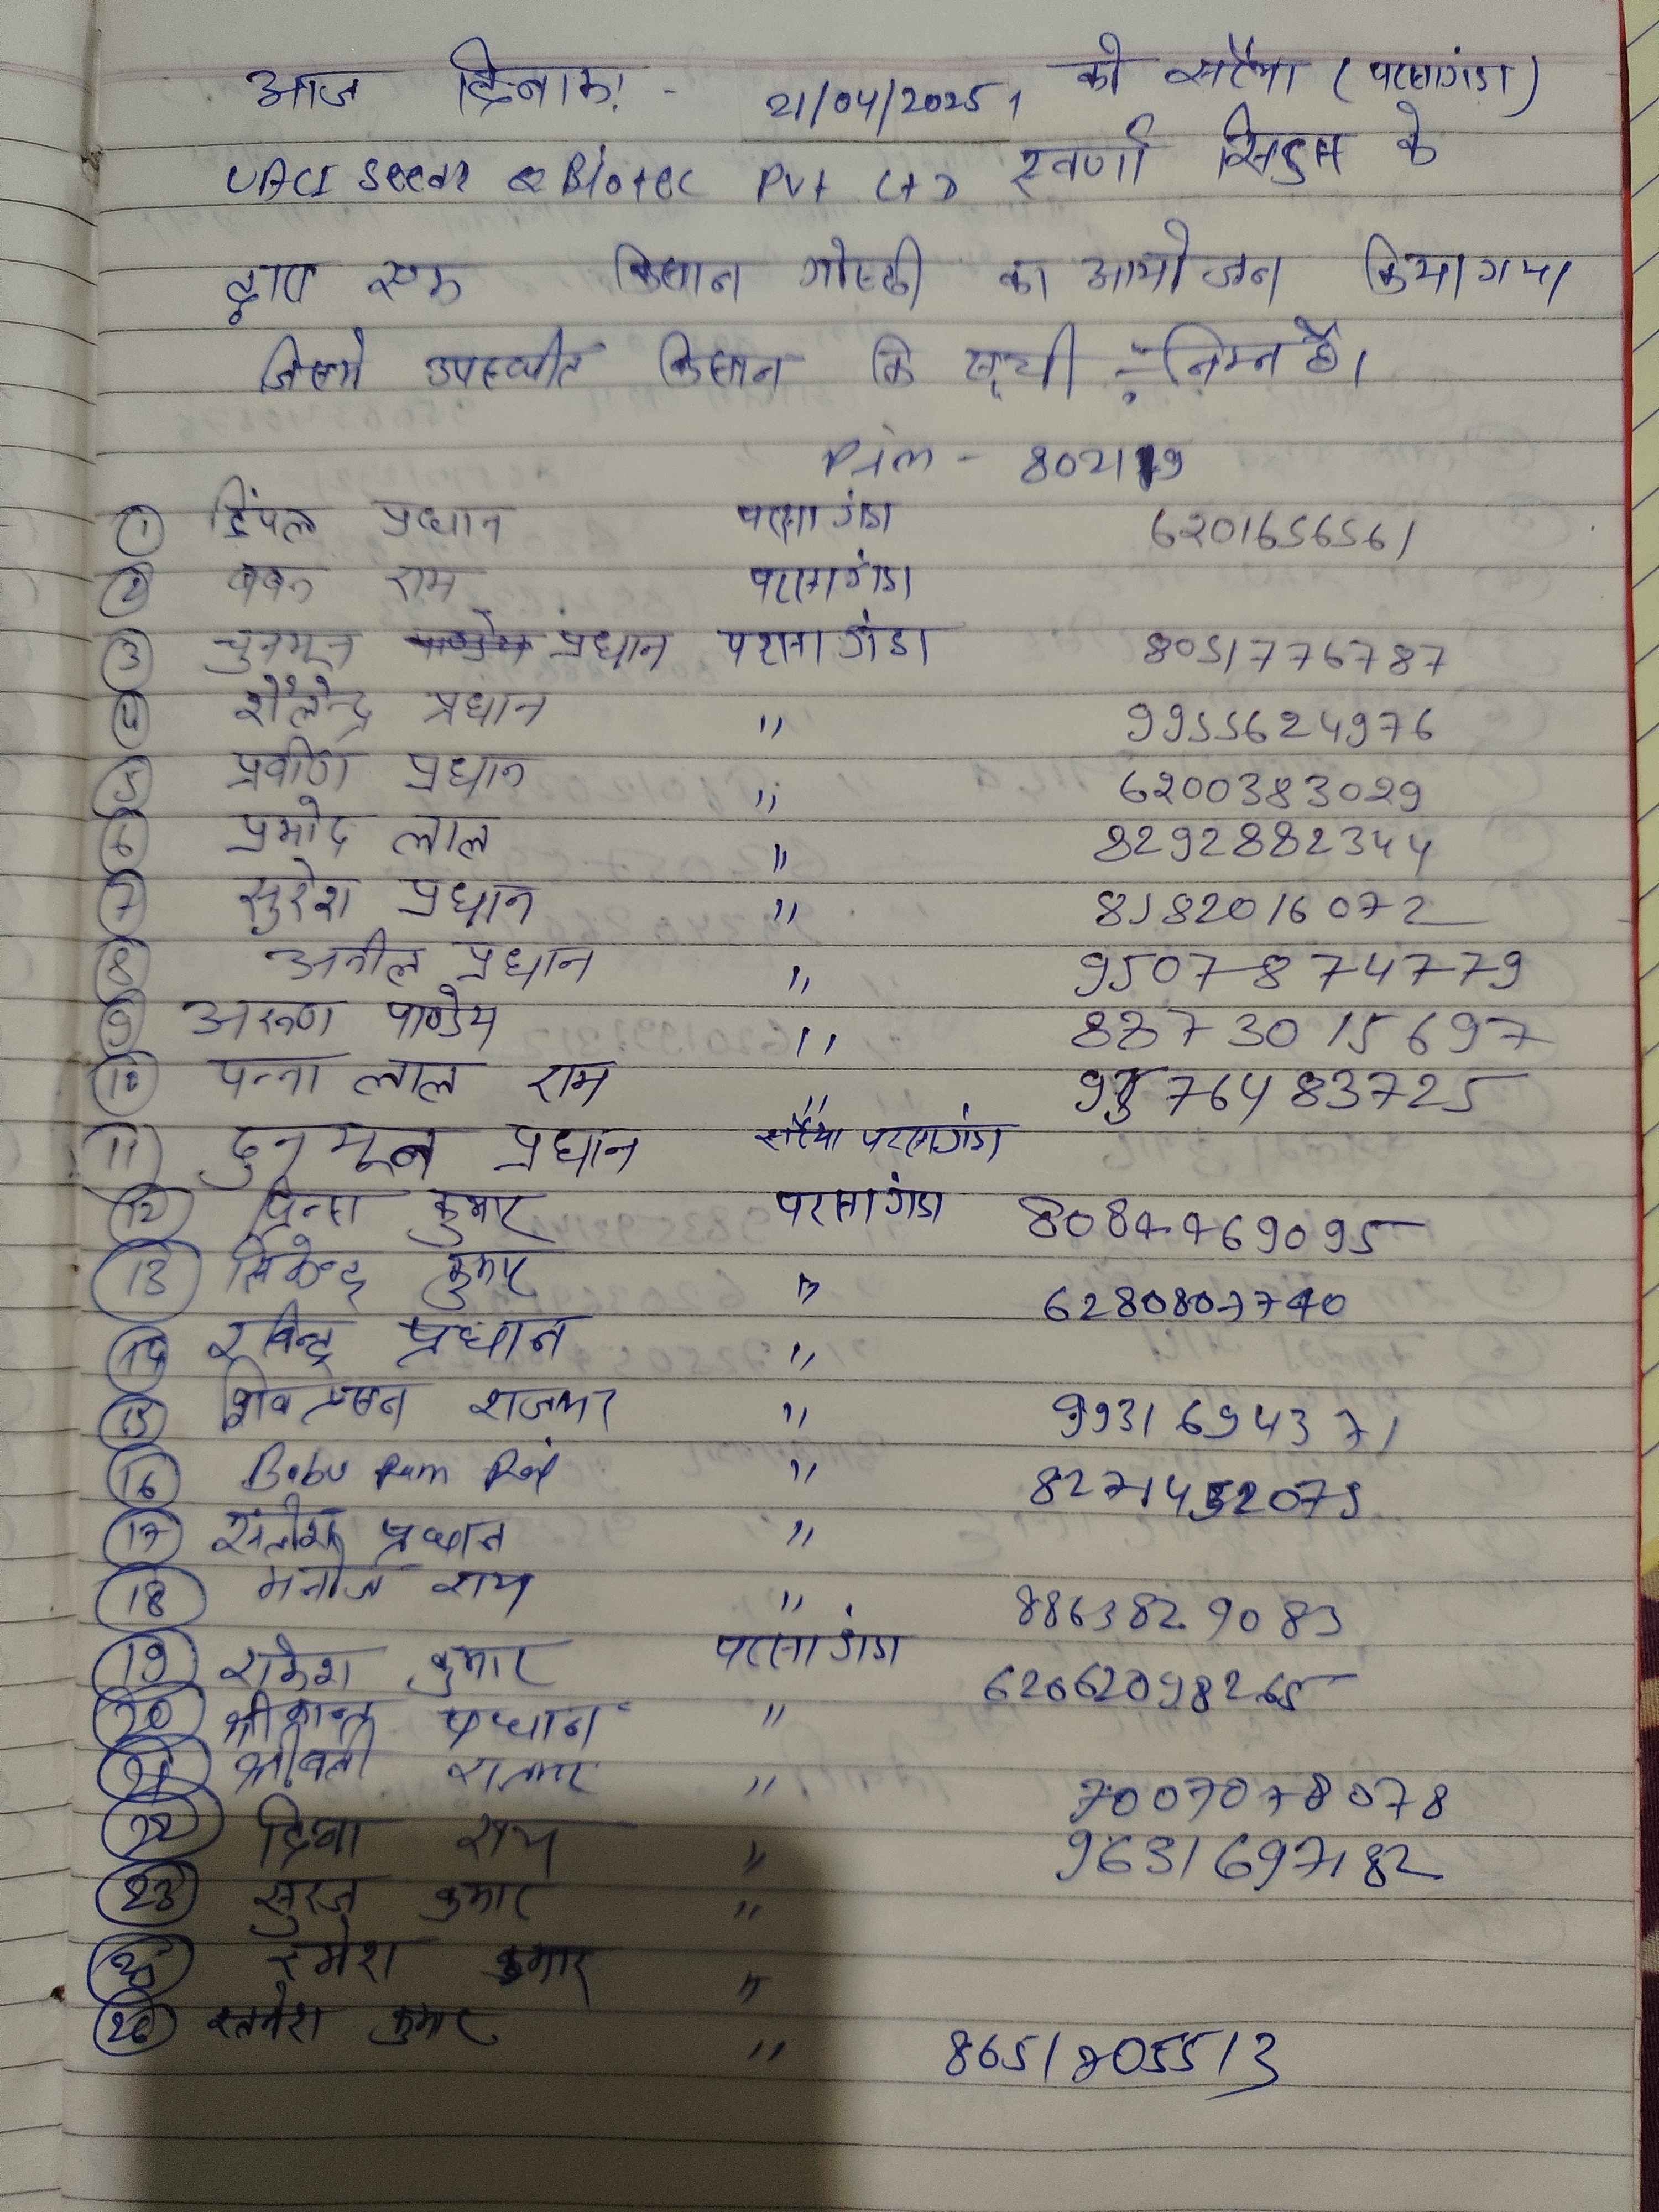 आज दिनांक - 21/04/2025 को सटैया (परसागंडा)
UACI Seeds & Biotec Pvt Ltd स्वर्णा सिड्स के
द्वारा एक किसान गोष्ठी का आयोजन किया गया
जिसमे उपस्थीत किसान कि सूची :- निम्न है।
Pin - 802119
1 डिंपल प्रधान परसागंडा 6201656561
2 बबन राम परसागंडा
3 चुनमून प्रधान परसागंडा 8051776787
4 शैलेन्द्र प्रधान " 9955624976
5 प्रवीण प्रधान " 6200383029
6 प्रमोद लाल " 8292882344
7 सुरेश प्रधान " 8182016072
8 अनील प्रधान " 9507874779
9 अरूण पाण्डेय " 8873015697
10 पन्ना लाल राम " 76483725
11 टुनमून प्रधान सटैया परसागंडा
12 प्रिन्स कुमार परसागंडा
13 कुमार "
14 रविन्द्र प्रधान "
15 शिव राजभर " 9931694371
16 Babu Ram "
17 संतोष प्रधान "
18 मनोज राय " 8863829083
19 राकेश कुमार परसागंडा
20 श्रीकान्त प्रधान "
21 " 7007078078
22 राय " 9631697182
23 सुरज कुमार "
25 रमेश कुमार "
26 कुमार " 8651705513